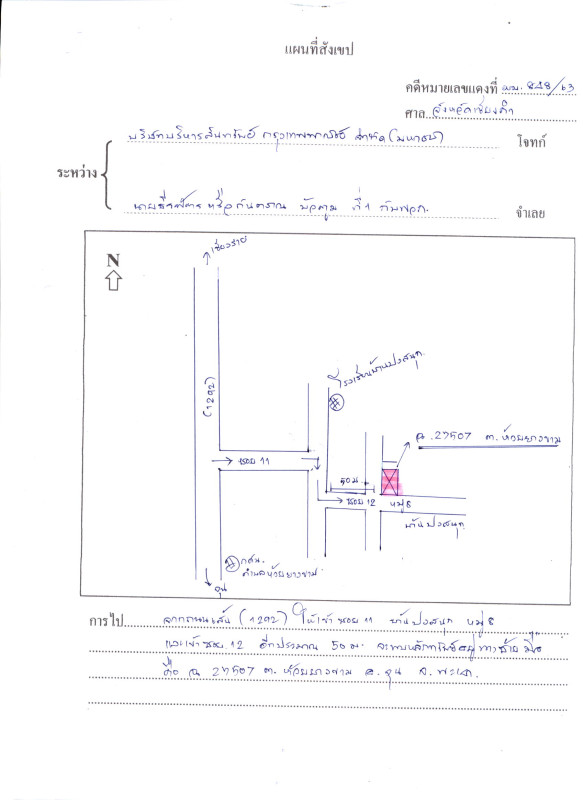 แผนที่สังเขป
คดีหมายเลขแดงที่ ผบ. 828/63
ศาล จังหวัดเชียงคำ
บริษัทบริหารสินทรัพย์ กรุงเทพพาณิชย์ จำกัด (มหาชน) โจทก์
ระหว่าง
หรือกันตราณ บัวคูม ที่ 1 กับพวก. จำเลย
เชียงราย
N
(1292)
โรงเรียนบ้านปงสนุก
ฉ. 27507 ต. ห้วยยางขาม
ซอย 11
50 ม.
ซอย 12 หมู่ 8
บ้านปงสนุก
กศน.
ตำบลห้วยยางขาม
จุน
การไป จากถนนเส้น (1292) ให้เข้า ซอย 11 บ้านปงสนุก หมู่ 8
และเข้าซอย 12 อีกประมาณ 50 ม. จะพบหลักทรัพย์อยู่ทางซ้ายมือ
คือ ฉ 27507 ต. ห้วยยางขาม อ. จุน จ. พะเยา.